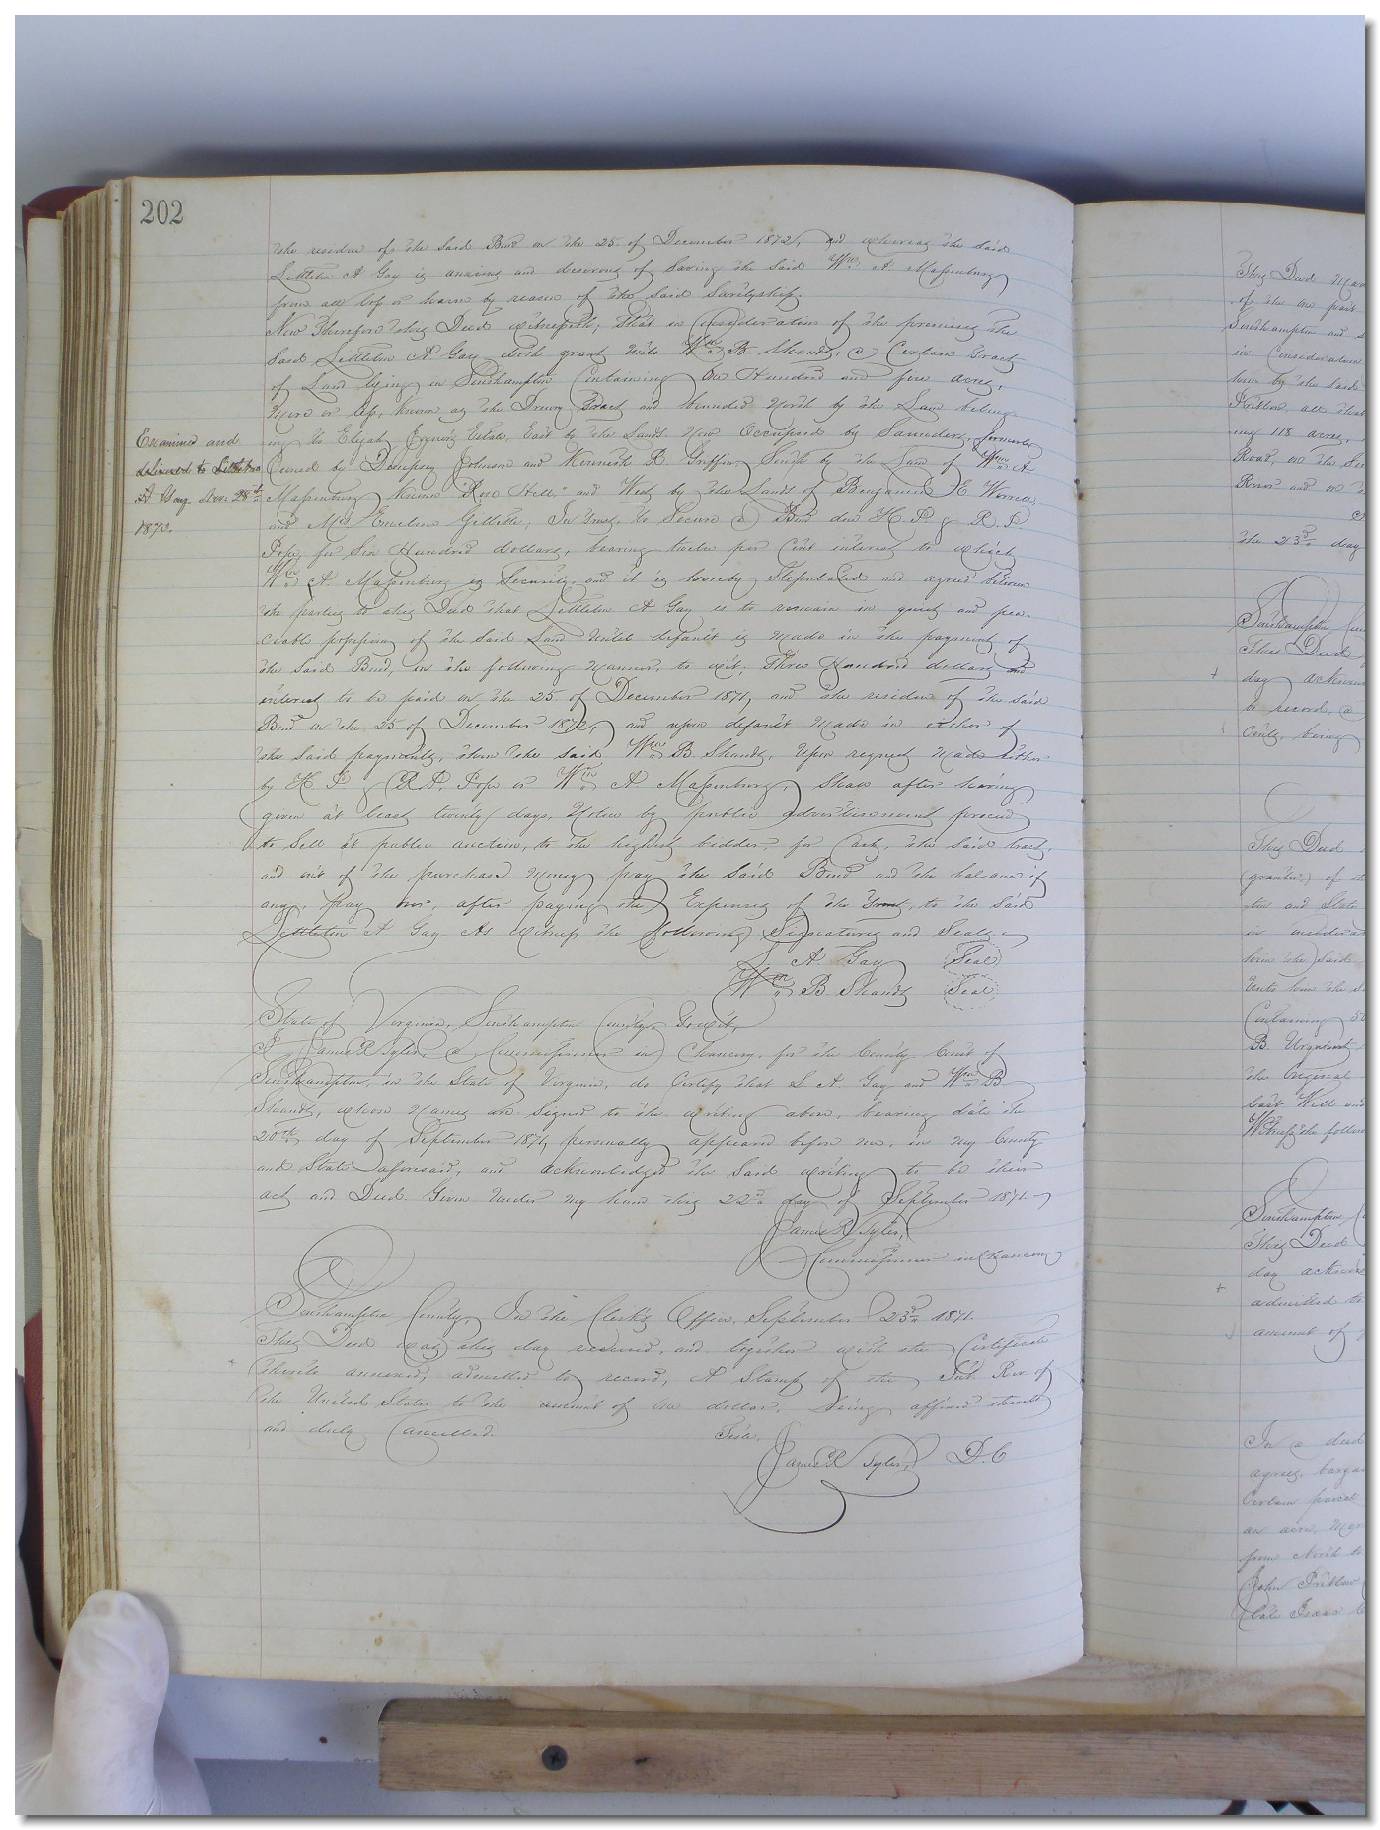 202
the residue of the Said Bond on the 25 of December 1872, and whereas the said
Littleton A Gay is anxious and desirous of Saving the Said Wm A. Massenburg
from all loss or harm by reason of the said Suretyship.
Now Therefore this Deed witnesseth, that in Consideration of the premises the
Said Littleton A Gay doth grant unto Wm B. Shands, a Certain tract
of Land lying in Southampton Containing One Hundred and five acres,
More or less, known as the Drewry Tract and bounded North by the Land belong-
ing to Elijah Joyner's Estate, East by the Lands Now Occupied by Saunders, formerly
Owned by Dempsey Johnson and Kenneth R Griffin, South by the Land of Wm A
Massenburg known "Rose Hill" and West by the Lands of Benjamin E
and Mrs Emeline Gillette, In trust, to Secure a Bond due H. P. & R. P.
Pope, for Six Hundred dollars, bearing twelve per Cent interest to which
Wm A. Massenburg is Security, and it is hereby Stipulated and agreed between
the parties to this Deed that Littleton A Gay is to remain in quiet and pea-
ceable possession of the Said Land Until default is Made in the payment of
the Said Bond, in the following Manner, to wit, Three Hundred dollars and
interest to be paid on the 25 of December 1871, and the residue of the Said
Bond on the 25 of December 1872, and upon default Made in either of
the Said payments, then the Said Wm B. Shands, Upon request Made either
by H. P. & R. P. Pope or Wm A Massenburg, Shall after having
given at least twenty days, Notice by public advertisement proceed
to Sell at public auction, to the highest bidder, for Cash, the said tract,
and out of the purchase Money pay the Said Bond and the balance if
any, pay over, after paying the Expenses of the trust, to the Said
Littleton A Gay As witness the following Signatures and Seals.
L. A. Gay Seal
Wm B. Shands Seal
State of Virginia, Southampton County, To wit,
I James R Tyler, a Commissioner in Chancery, for the County Court of
Southampton, in the State of Virginia, do Certify that L A. Gay and Wm B
Shands, whose Names are Signed to the writing above, bearing date the
20th day of September 1871, personally appeared before me, in my County
and State aforesaid, and acknowledged the Said writing to be their
act and Deed. Given Under My hand this 22nd day of September 1871.
James R Tyler,
Commissioner in Chancery
Southampton County, In the Clerk's Office, September 23rd 1871.
This Deed was this day received, and together with the Certificate
thereto annexed, admitted to record, A Stamp of the Int. Rev. of
the United States to the amount of one dollar, being affixed thereto
and duly Cancelled. Teste.
James R Tyler, D.C
Examined and
delivered to Littleton
A Gay Nov. 28th
1872.
This Deed Made
of the one part
Southampton and
in Consideration
him by the Said
Pretlow, all that
ing 118 acres,
Road, on the
River and on
the 23rd day
Southampton
This Deed
day acknow
to record, a
Cents, being
This Deed
(grantor) of
ton and State
in considerat
him the said
Unto him the
Containing 50
B. Urquhart
the Original
last Will and
Witness the follow
Southampton
This Deed
day acknow
admitted to
amount of
In a deed
agrees, barga
Certain parcel
an acre, More
from North to
John Pretlow